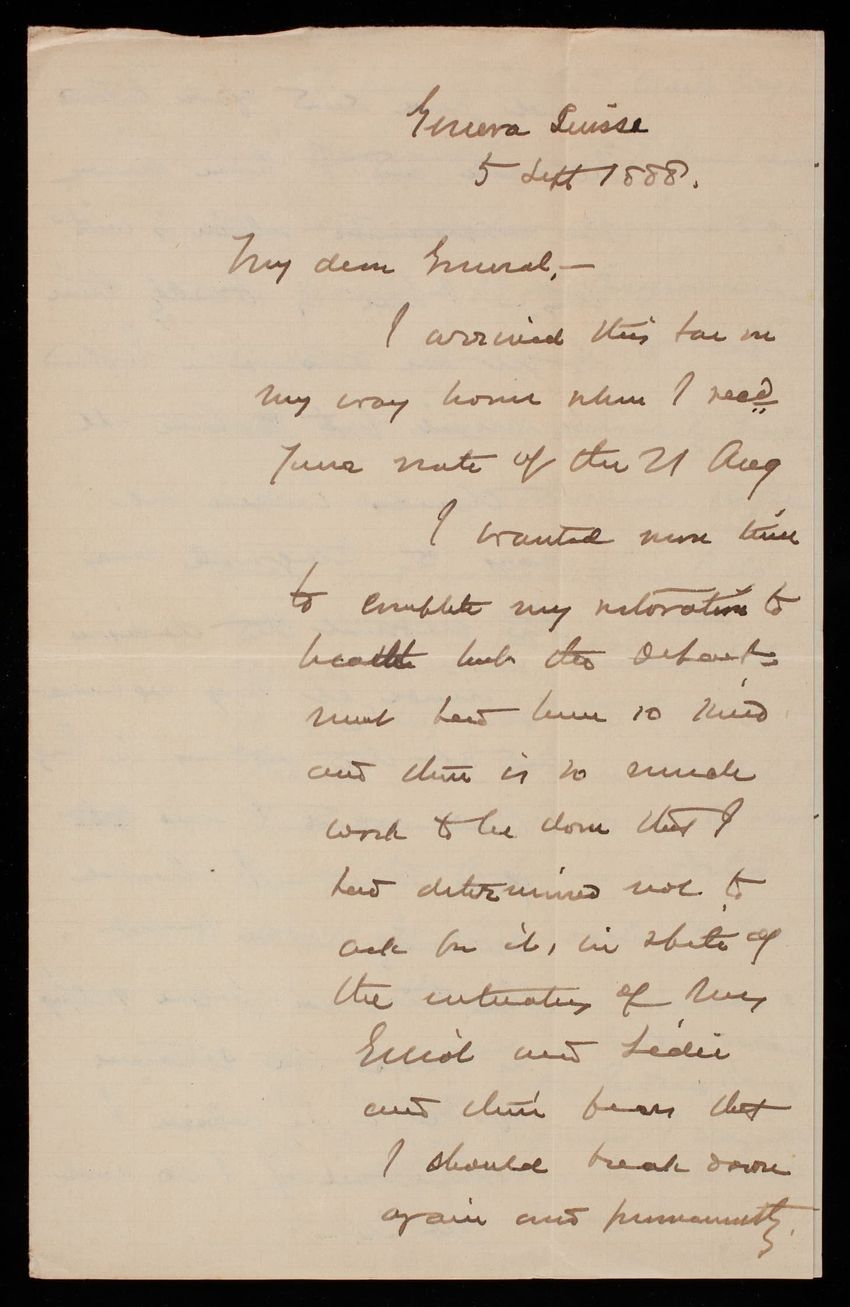 Geneva Suisse
5 Sept 1888.
My dear General,—
I arrived this far on
my way home when I recd
your note of the 21 Aug
I wanted more time
to complete my restoration to
health but the Depart-
ment had been so kind
and there is so much
work to be done that I
had determined not to
ask for it, in spite of
the entreaties of
and
and their fears that
I should break down
again and permanently.